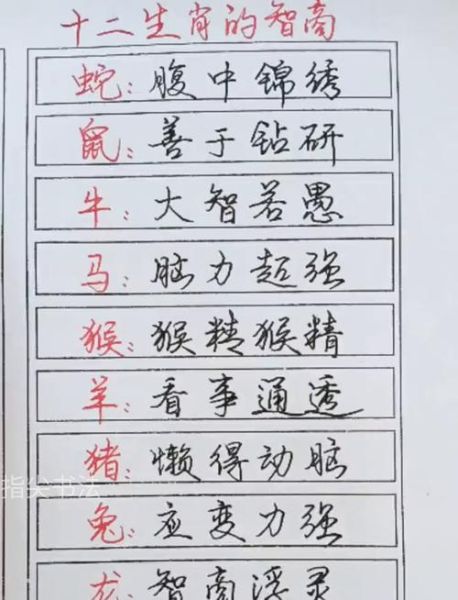 十二生肖的智商
蛇：腹中锦绣
鼠：善于钻研
牛：大智若愚
马：脑力超强
猴：猴精猴精
羊：看事通透
猪：懒得动脑
指尖书法
兔：应变力强
龙：智商浮灵